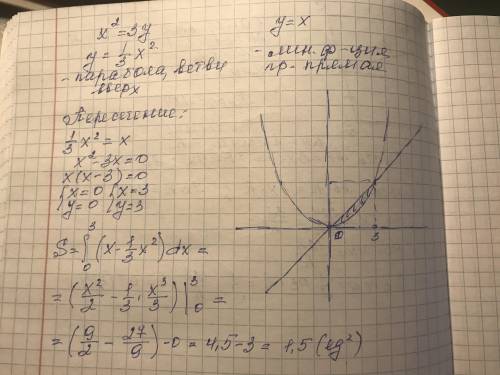 x² = 3y
y = 1/3 x²
- парабола, ветви
вверх
y = x
- лин. ф-ция
гр- прямая
Пересечение:
1/3 x² = x
x² - 3x = 0
x(x-3) = 0
{x=0 {x=3
{y=0 {y=3
S = ∫₀³ (x - 1/3 x²) dx =
= (x²/2 - 1/3 · x³/3) |₀³ =
= (9/2 - 27/9) - 0 = 4,5 - 3 = 1,5 (ед²)
0
3